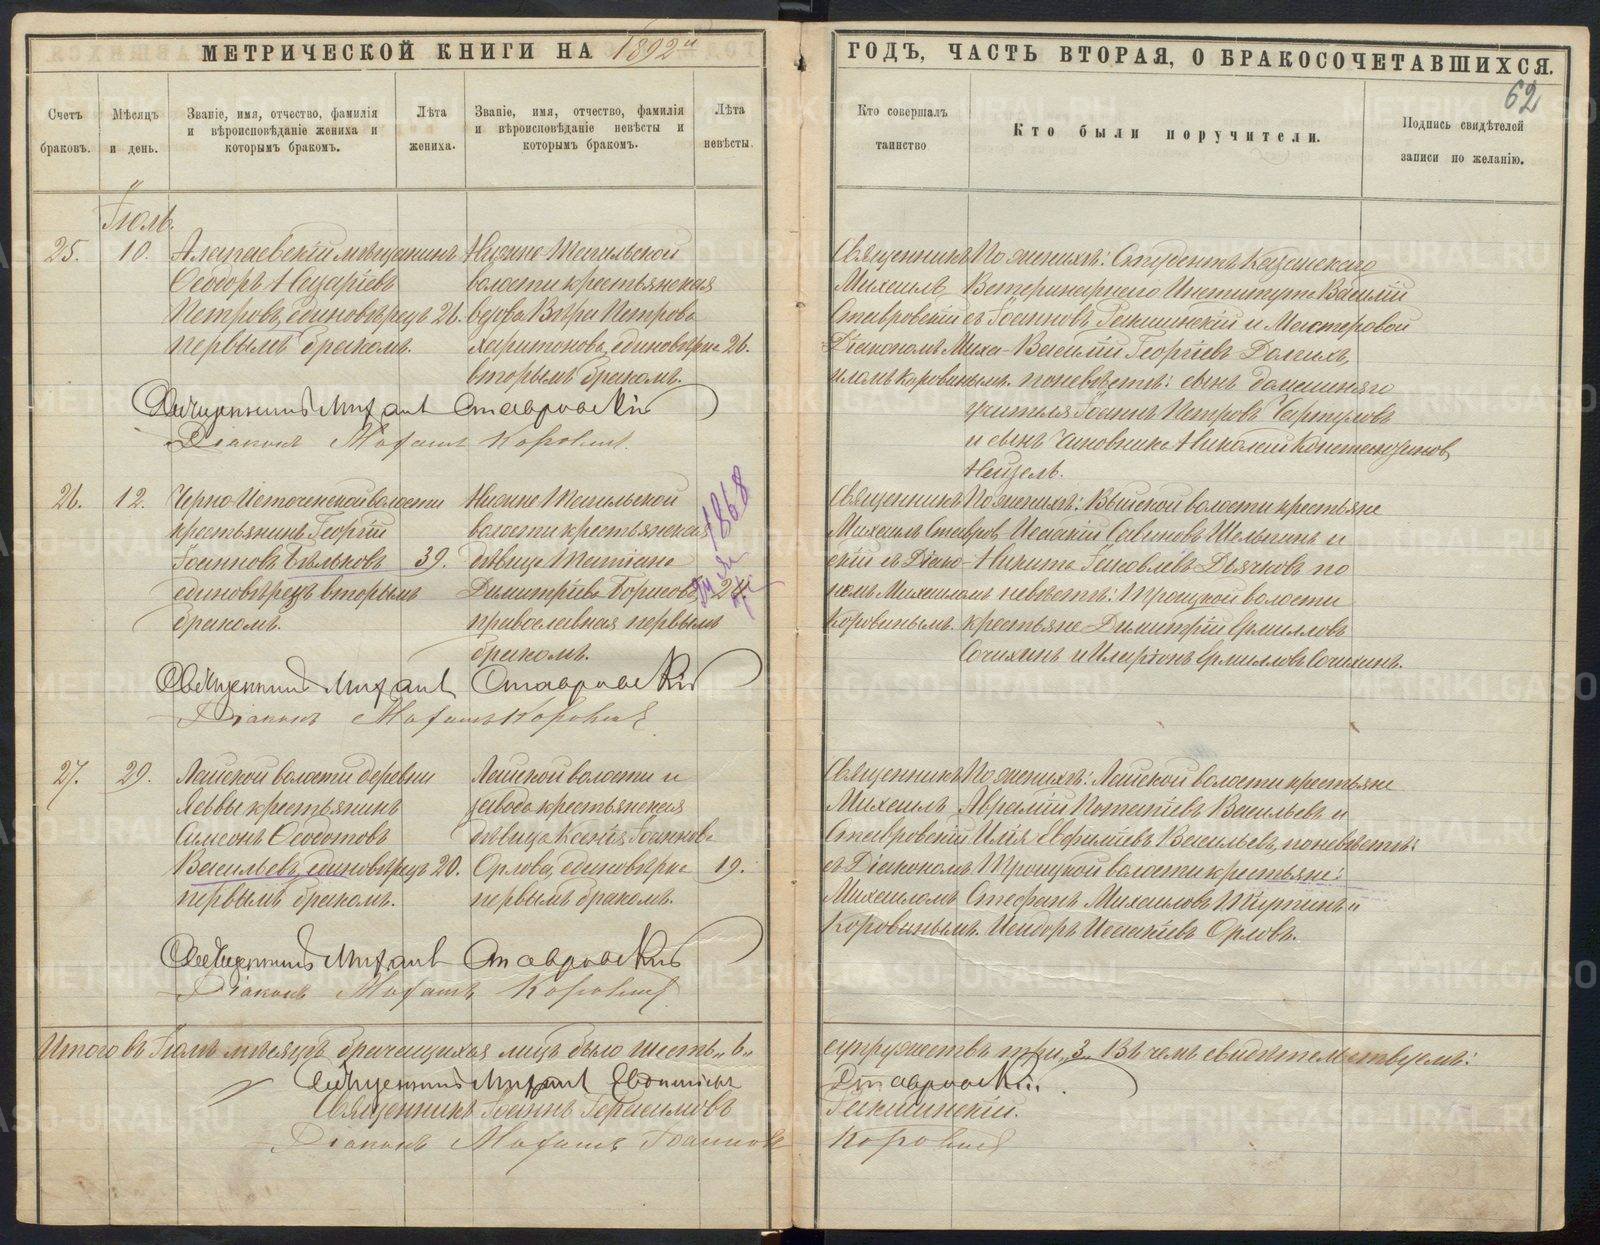 МЕТРИЧЕСКОЙ КНИГИ НА 1892й
Счетъ браковъ.
Мѣсяцъ и день.
Званіе, имя, отчество, фамилія
и вѣроисповѣданіе жениха и
которымъ бракомъ.
Лѣта жениха.
Званіе, имя, отчество, фамилія
и вѣроисповѣданіе невѣсты и
которымъ бракомъ.
Лѣта невѣсты.
Іюль.
25. 10. Алапаевскій мѣщанинъ
Ѳеодоръ Назаріевъ
Петровъ, единовѣрецъ 26.
первымъ бракомъ.
Нижне Тагильской
волости крестьянская
вдова Вѣра Петрова
Харитонова, единовѣрка 26.
вторымъ бракомъ.
Священникъ Михаилъ Ставровскій
Діаконъ Михаилъ Коровинъ.
26. 12. Черно-Источинской волости
крестьянинъ Георгій
Іоанновъ Бѣльковъ 39.
единовѣрецъ вторымъ
бракомъ.
Нижне Тагильской
волости крестьянская
дѣвица Татіана
Димитріева Борисова, 24.
православная первымъ
бракомъ.
1868
Священникъ Михаилъ Ставровскій
Діаконъ Михаилъ Коровинъ
27. 29. Лайской волости деревни
крестьянинъ
Симеонъ Ѳеодотовъ
Васильевъ, единовѣрецъ 20.
первымъ бракомъ.
Лайской волости и
завода крестьянская
дѣвица Ксенія Іоаннова
Орлова, единовѣрка 19.
первымъ бракомъ.
Священникъ Михаилъ Ставровскій
Діаконъ Михаилъ Коровинъ
Итого въ Іюлѣ мѣсяцѣ брачащихся лицъ было шесть „6„
Священникъ Михаилъ
Священникъ Іоаннъ Герасимовъ
Діаконъ Михаилъ Іоанновъ
ГОДЪ, ЧАСТЬ ВТОРАЯ, О БРАКОСОЧЕТАВШИХСЯ.
62
Кто совершалъ таинство
Кто были поручители.
Подпись свидѣтелей
записи по желанію.
Священникъ
Михаилъ
Ставровскій съ
Діакономъ Миха-
иломъ Коровинымъ.
По женихѣ: Студентъ Казанскаго
Ветеринарнаго Института Василій
Іоанновъ Гакшинскій и Мастеровой
Василій Георгіевъ Долгихъ,
по невѣстѣ: сынъ домашняго
учителя Іоаннъ Петровъ
и сынъ чиновника Николай Константиновъ
Священникъ
Михаилъ Ставров-
скій съ Діако-
номъ Михаиломъ
Коровинымъ.
По женихѣ: Выйской волости крестьяне
Исаакій Савиновъ Шелыгинъ и
Никита Іаковлевъ Дьячковъ по
невѣстѣ: Троицкой волости
крестьяне Димитрій Ермиловъ
Сочихинъ и Иларіонъ Ермиловъ Сочихинъ.
Священникъ
Михаилъ
Ставровскій
съ Діакономъ
Михаиломъ
Коровинымъ.
По женихѣ: Лайской волости крестьяне
Аврамій Потапіевъ Васильевъ и
Илія Евфиміевъ Васильевъ, по невѣстѣ:
Троицкой волости крестьяне:
Стефанъ Михаиловъ и
Исидоръ Исаакіевъ Орловъ.
супружествъ три „3„ Въ чемъ свидѣтельствуемъ:
Ставровскій.
Гакшинскій.
Коровинъ
METRIKI.GASO-URAL.RU